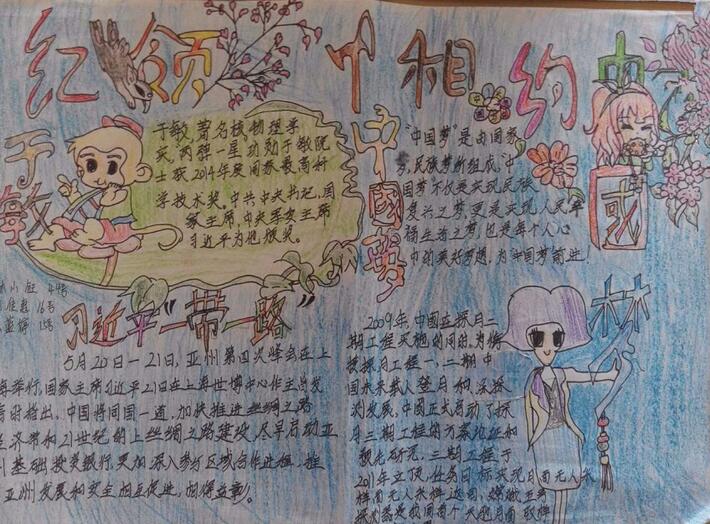 红领巾相约中国梦
于敏
于敏 著名核物理学
家。两弹一星功勋于敏院
士获2014年度国家最高科
学技术奖。中共中央书记、国
家主席,中央军委主席
习近平为他颁奖。
中國夢
"中国梦"是由国家
梦,民族梦所组成,中
国梦不仅是实现民族
复兴之梦,更是实现人民幸
福生活之梦,也是每个人心
中的美好梦想,为中国梦前进!
44号
16号
15号
习近平"一带一路"
5月20日—21日,亚洲第四次峰会在上
海举行,国家主席习近平21日在上海世博中心作主旨发
言时指出,中国将同国一道,加快推进丝绸之路
经济带和21世纪的上丝绸之路建设,尽早启动亚
洲基础投资银行,更加深入参与区域合作进程,推
亚洲发展和安全相互促进,相得益彰。
2009年,中国在探月二
期工程实施的同时,为衔
接探月工程一、二期,中
国未来载人登月和深探
测发展,中国正式启动了探
月三期工程的方案论证和
预先研究。三期工程于
2011年立项,任务目标实现月面无人采